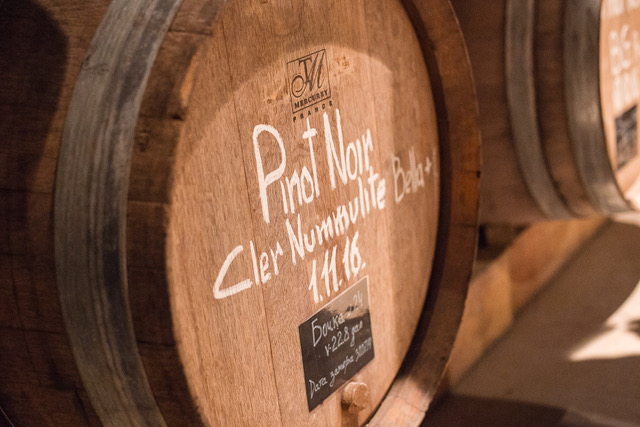 TM
MERCUREY
FRANCE
Pinot Noir
Cler Nummulite Bella+
1.11.16.
Бочка №24
V-22.8 дал
Дата замера
BG